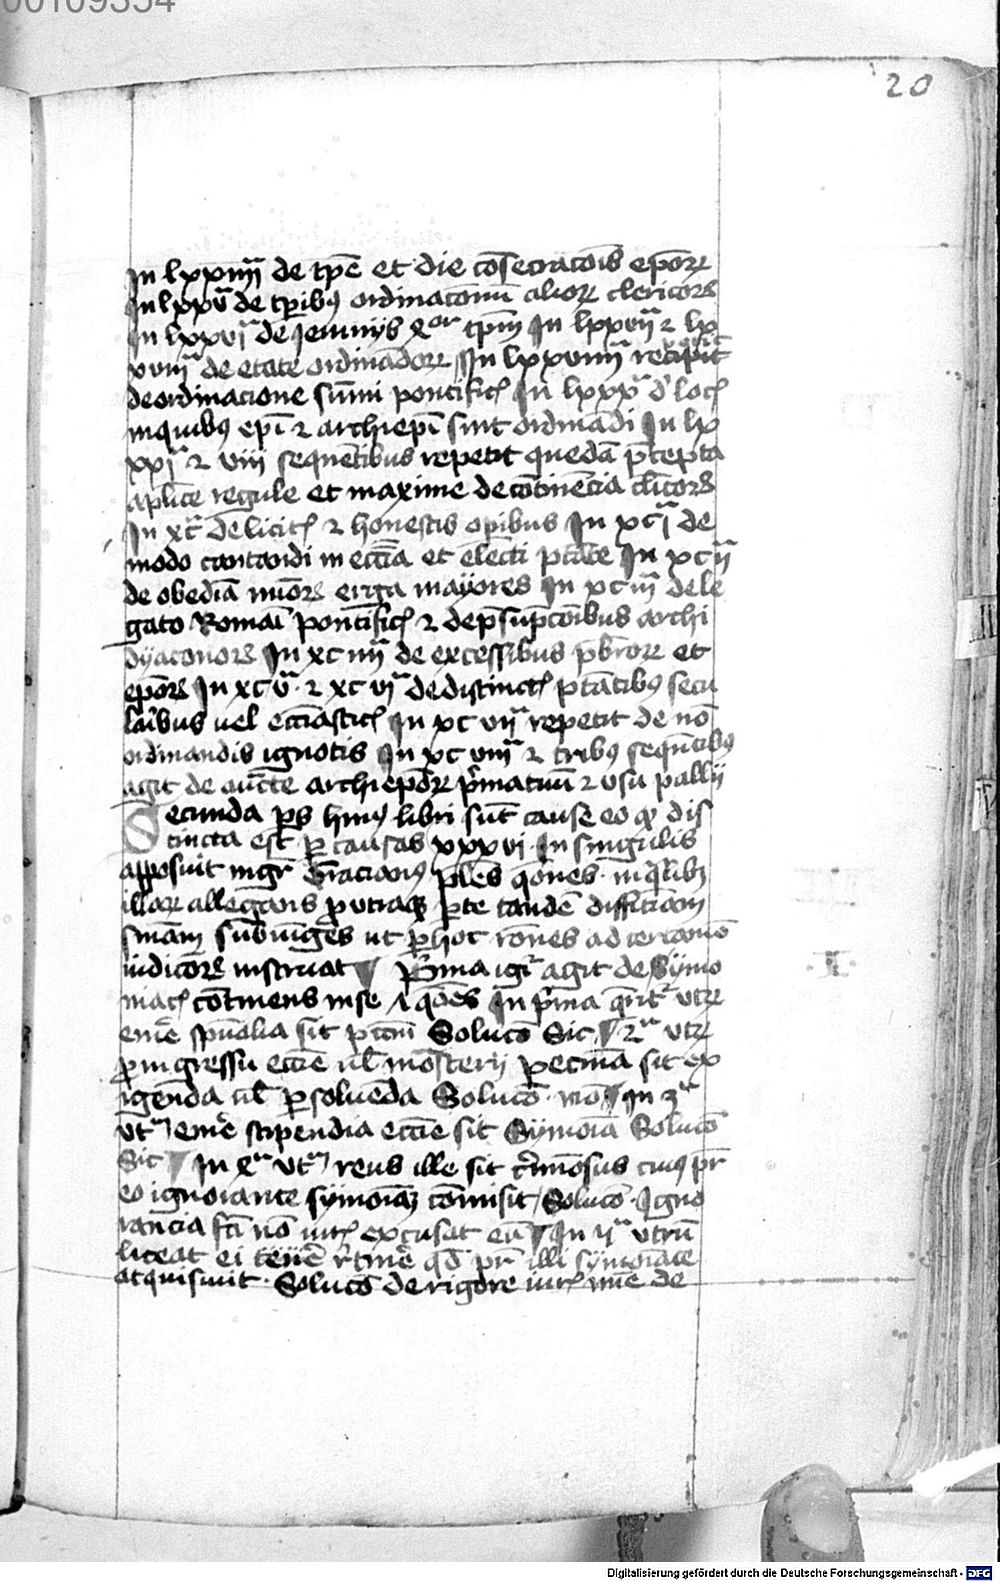 00109354
20
In lxxiiii de tpe et die cōsecracōis epore
In lxxv de tpibꝰ ordinaconū alioꝝ clericoꝝ
In lxxvi de Ieiunijs tpm̄ In lxxvii ⁊ lx
xviii de etate ordinādoꝝ In lxxviiii recipit
de ordinacione sūmi pontific In lxxx d' loc
in quibꝰ epi ⁊ archiepi sint ordinādi In lx
xxi ⁊ viii sequētibus repetit quedā p̄cepta
aplice regule et maxime de cōtinēcia clicoꝝ
In xc de licit ⁊ honestis opibus In xci de
modo cantandi in eccīa et In xcii
de obediā mīoꝝ erga mayores In xciii de le
gato Romāi pontific ⁊ de p̄sūpcōibus archi
dyaconoꝝ In xciiii de excessibus pb̄roꝝ et
epoꝝ In xcv ⁊ xcvi de distinct ptātibꝰ secu
laribus uel eccīastic In xcvii repetit de nō
ordinandis ignotis In xcviii ⁊ tribꝰ sequētibꝰ
agit de auc̄te archiepoꝝ p̄matuū ⁊ usu pallij
Secunda ps huiꝰ libri sūt cause eo qꝫ dis
tincta est p causas xxxvi In singulis
apposuit mgr Gracianꝰ ples q̄ones in q̄libꝫ
illaꝝ allegans p utraqꝫ p̄te tandē diffinitiuam
sniam subiūgēs ut p hoc rōnes ad certamē
iudicoꝝ instruat Prima igr agit de symo
niac cōtinens in se q̄oēs In p̄ma q̄rit utꝝ
emē̄ spūalia sit pctm Solucō Sic 2ª utꝝ
p ingressu eccīe ul mōsterij pecunia sit ex
igenda ul psoluēda Solucō nō In 3ª
utꝝ emē stipendia eccīe sit Symoīa Solucō
Sic In utꝝ reus ille sit c̄mōsus cuiꝰ pr
eo ignorante symoiaꝫ cōmisit Solucō Igno
rancia fcī nō iur excusat eū In vª utrū
liceat ei tenē r̄tinē qd pr illi symoīace
acquisiuit Solucō de rigore iur nīe de
Digitalisierung gefördert durch die Deutsche Forschungsgemeinschaft - DFG